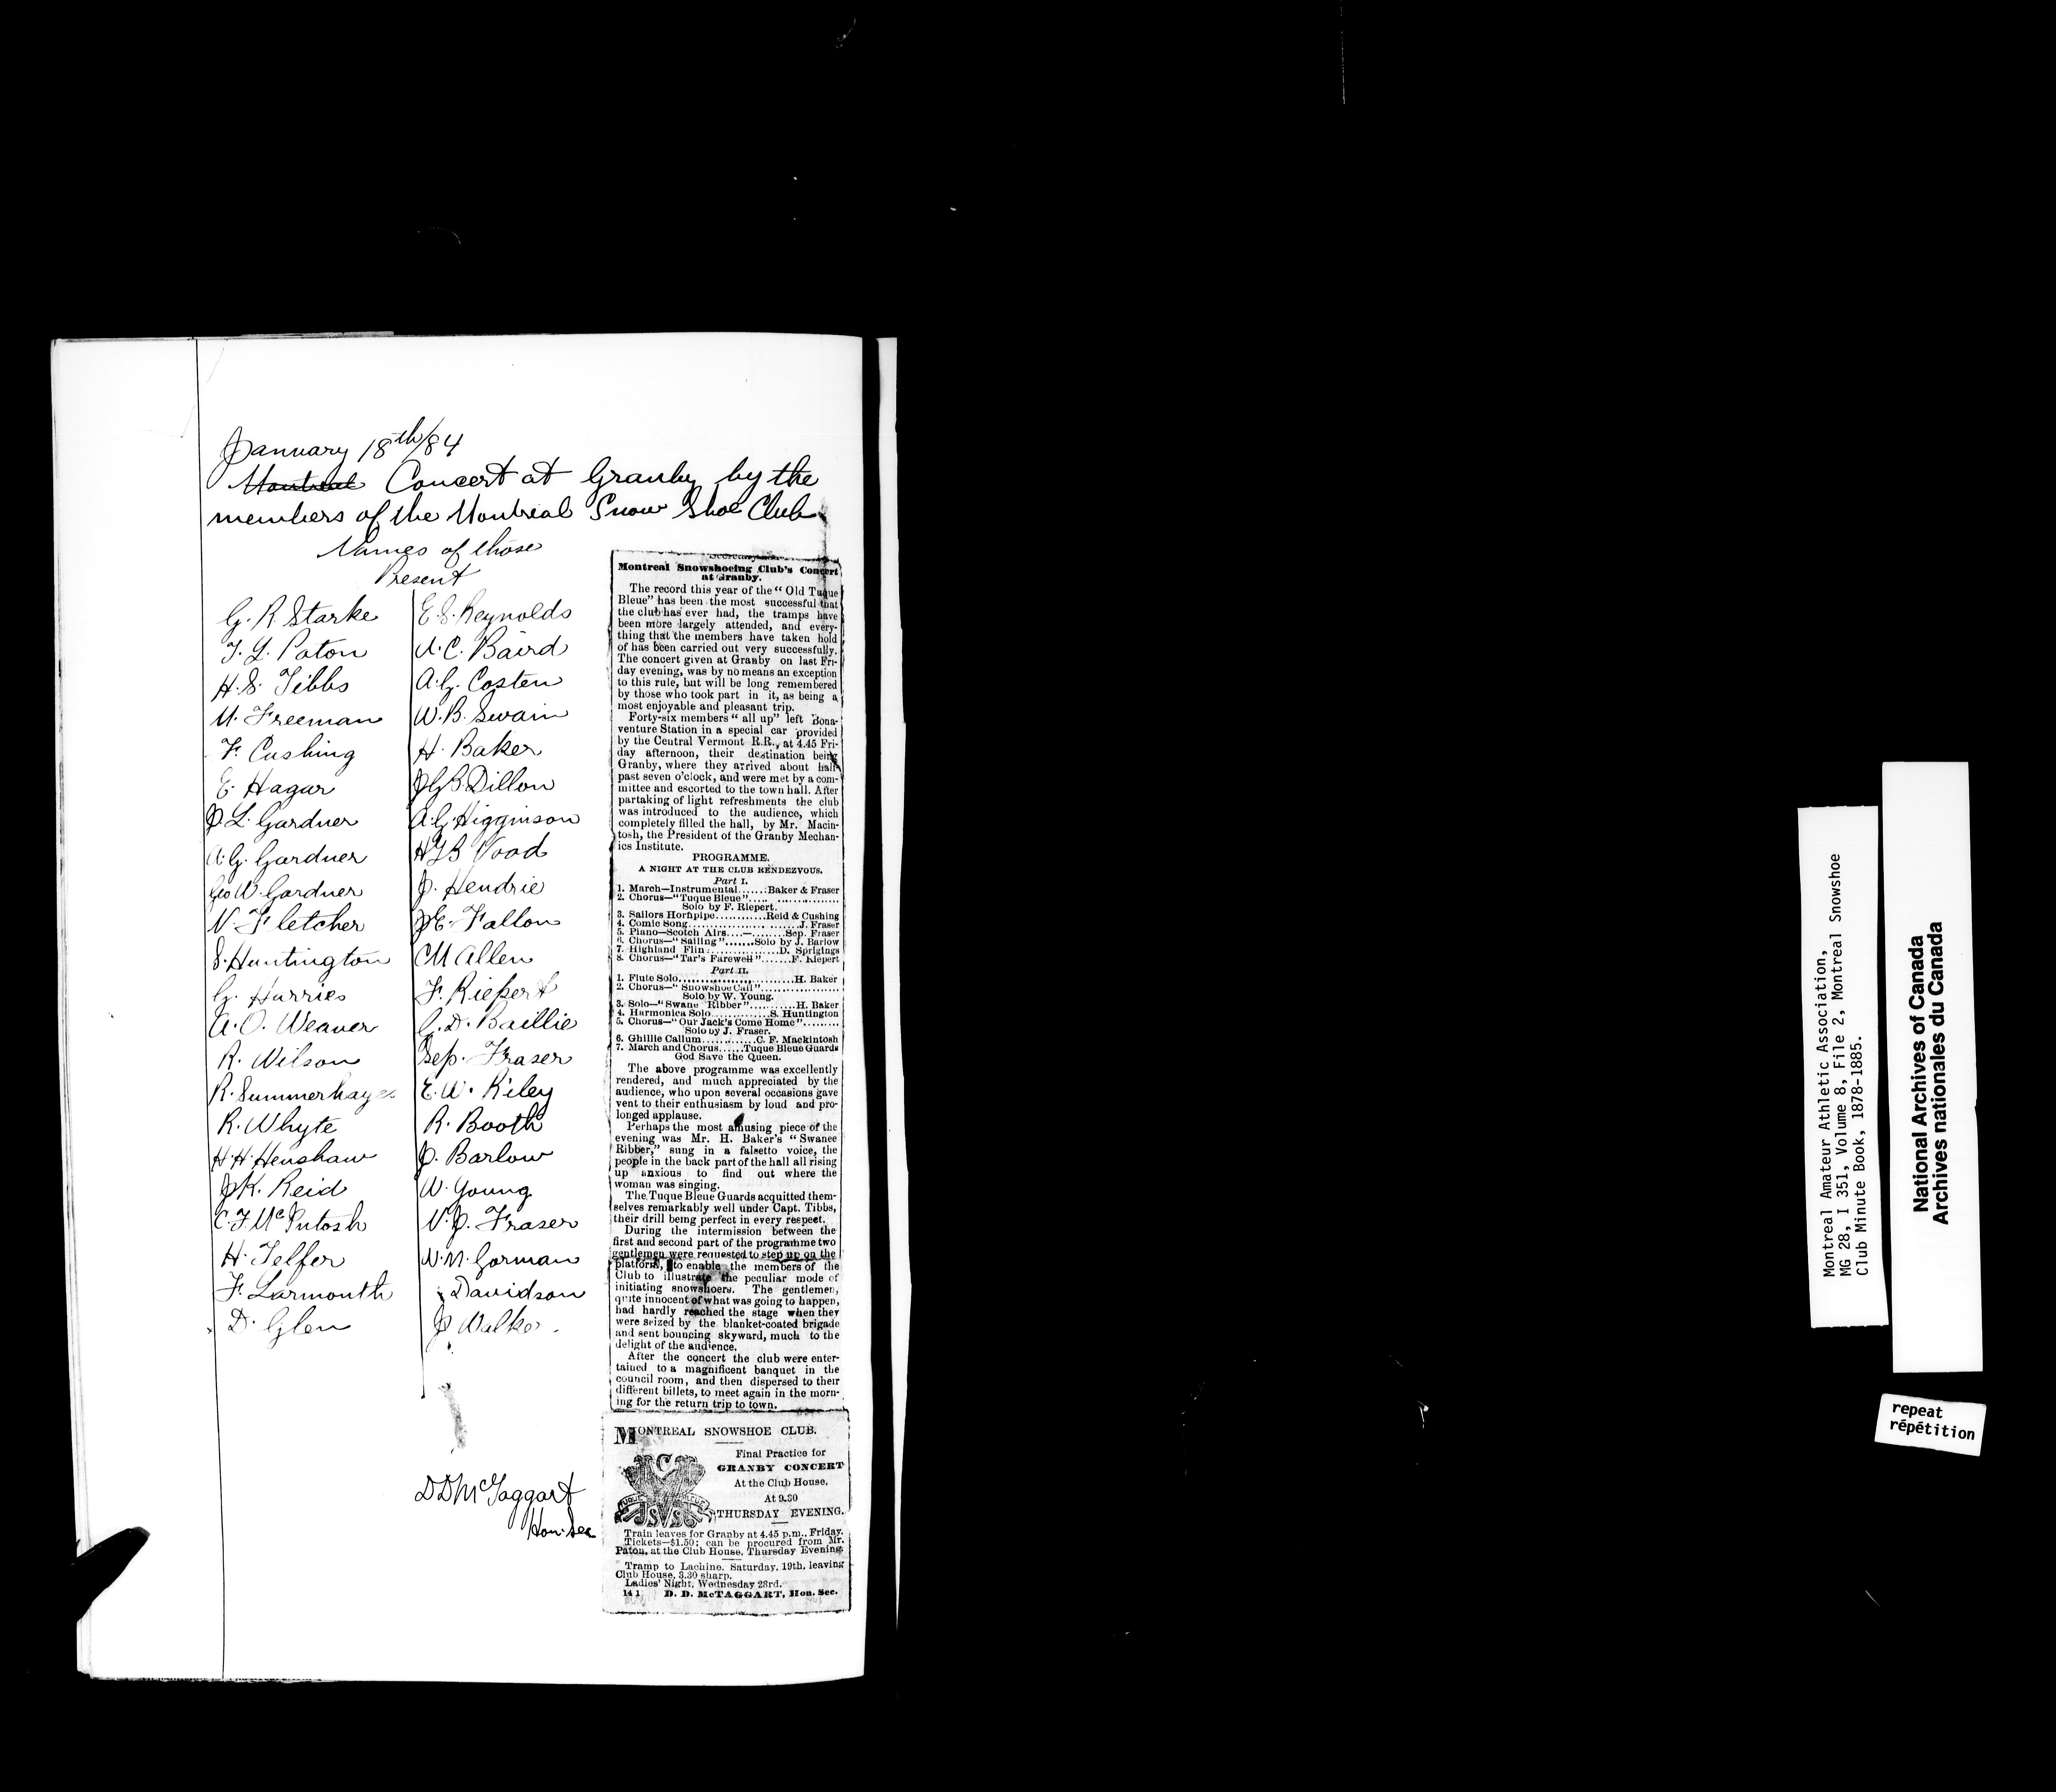 January 18th/84
Montreal Concert at Granby by the
members of the Montreal Snow Shoe Club
Names of those
Present
G. R. Starke
T. L. Paton
H. S. Tibbs
M. Freeman
F. Cushing
E. Hagar
J. L. Gardner
A. G. Gardner
Geo W. Gardner
N. Fletcher
S. Huntington
G. Hurries
A. O. Weaver
R. Wilson
R. Summerhayes
R. Whyte
H. H. Henshaw
J K. Reid
C. F. McIntosh
H. Telfer
F. Larmouth
D. Glen
E. S. Reynolds
A. C. Baird
A. G. Costen
W. B. Swain
H. Baker
J G B Dillon
A. G. Higginson
Wood
J. Hendrie
J E. Fallon
C M Allen
F. Riepert
G. D. Baillie
Sep. Fraser
E. W. Riley
R. Booth
J. Barlow
W. Young
W. J. Fraser
W. M. Gorman
Davidson
J Walker.
D D McTaggart
Hon. Sec
Montreal Snowshoeing Club's Concert
at Granby.
The record this year of the "Old Tuque
Bleue" has been the most successful that
the club has ever had, the tramps have
been more largely attended, and every-
thing that the members have taken hold
of has been carried out very successfully.
The concert given at Granby on last Fri-
day evening, was by no means an exception
to this rule, but will be long remembered
by those who took part in it, as being a
most enjoyable and pleasant trip.
Forty-six members "all up" left Bona-
venture Station in a special car provided
by the Central Vermont R.R., at 4.45 Fri-
day afternoon, their destination being
Granby, where they arrived about half-
past seven o'clock, and were met by a com-
mittee and escorted to the town hall. After
partaking of light refreshments the club
was introduced to the audience, which
completely filled the hall, by Mr. Macin-
tosh, the President of the Granby Mechan-
ics Institute.
PROGRAMME.
A NIGHT AT THE CLUB RENDEZVOUS.
Part I.
1. March—Instrumental......Baker & Fraser
2. Chorus—"Tuque Bleue"....................
Solo by F. Riepert.
3. Sailors Hornpipe............Reid & Cushing
4. Comic Song..........................J. Fraser
5. Piano—Scotch Airs....—........Sep. Fraser
6. Chorus—"Sailing".......Solo by J. Barlow
7. Highland Flin.................D. Sprigings
8. Chorus—"Tar's Farewell".......F. Riepert
Part II.
1. Flute Solo............................H. Baker
2. Chorus—"Snowshoe Call"..................
Solo by W. Young.
3. Solo—"Swane Ribber"..........H. Baker
4. Harmonica Solo..............S. Huntington
5. Chorus—"Our Jack's Come Home".........
Solo by J. Fraser.
6. Ghillie Callum............C. F. Mackintosh
7. March and Chorus......Tuque Bleue Guards
God Save the Queen.
The above programme was excellently
rendered, and much appreciated by the
audience, who upon several occasions gave
vent to their enthusiasm by loud and pro-
longed applause.
Perhaps the most amusing piece of the
evening was Mr. H. Baker's "Swanee
Ribber," sung in a falsetto voice, the
people in the back part of the hall all rising
up anxious to find out where the
woman was singing.
The Tuque Bleue Guards acquitted them-
selves remarkably well under Capt. Tibbs,
their drill being perfect in every respect.
During the intermission between the
first and second part of the programme two
gentlemen were requested to step up on the
platform, to enable the members of the
Club to illustrate the peculiar mode of
initiating snowshoers. The gentlemen,
quite innocent of what was going to happen,
had hardly reached the stage when they
were seized by the blanket-coated brigade
and sent bouncing skyward, much to the
delight of the audience.
After the concert the club were enter-
tained to a magnificent banquet in the
council room, and then dispersed to their
different billets, to meet again in the morn-
ing for the return trip to town.
MONTREAL SNOWSHOE CLUB.
Final Practice for
GRANBY CONCERT
At the Club House,
At 9.30
THURSDAY EVENING.
Train leaves for Granby at 4.45 p.m., Friday.
Tickets—$1.50; can be procured from Mr.
Paton, at the Club House, Thursday Evening.
Tramp to Lachine, Saturday, 19th, leaving
Club House, 3.30 sharp.
Ladies' Night, Wednesday 23rd.
14 1 D. D. McTAGGART, Hon. Sec.
Montreal Amateur Athletic Association,
MG 28, I 351, Volume 8, File 2, Montreal Snowshoe
Club Minute Book, 1878-1885.
National Archives of Canada
Archives nationales du Canada
repeat
répétition